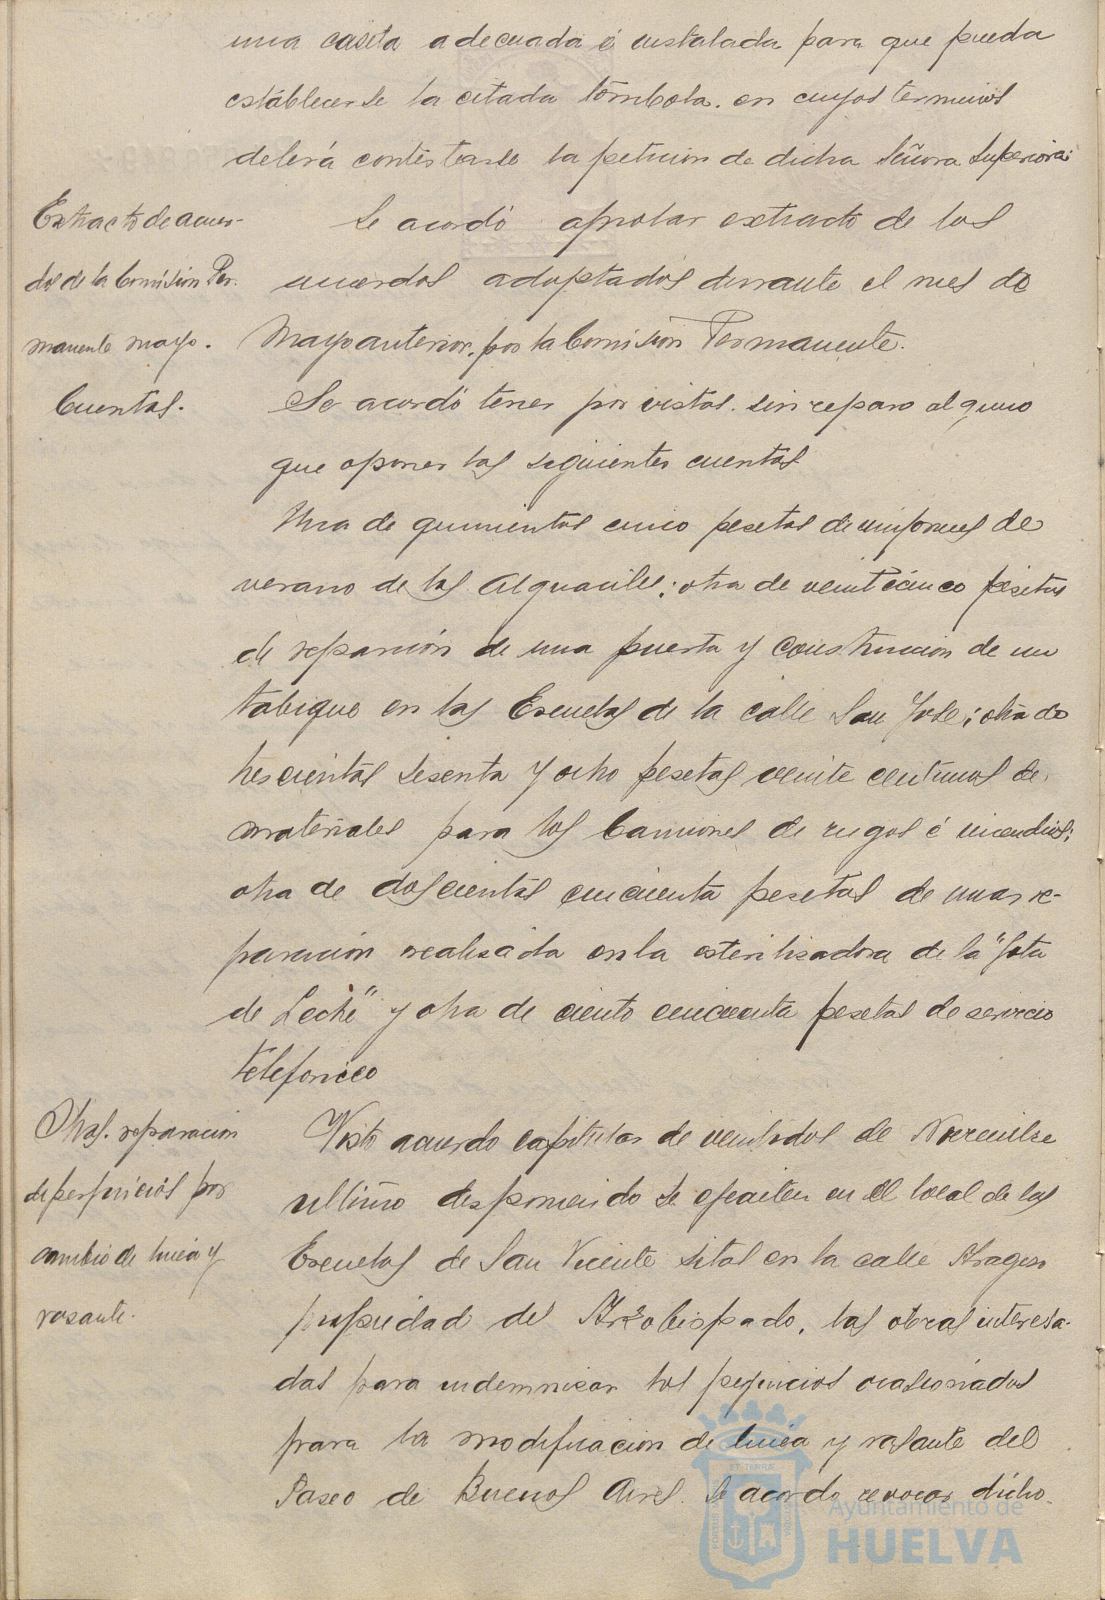 una caseta adecuada é instalada para que pueda
establecerse la citada tómbola. en cuyos terminos
deberá contestarse la peticion de dicha Señora Superiora:
Extracto de acuer-
dos de la Comisión Per-
manente mayo.
Se acordó aprobar extracto de los
acuerdos adoptados durante el mes de
Mayo anterior, por la Comisión Permanente.
Cuentas.
Se acordó tener por vistas. sin reparo alguno
que oponer las siguientes cuentas
Una de quinientas cinco pesetas de uniformes de
verano de los Alguaciles; otra de veinticinco pesetas
de reparación de una puerta y construcion de un
tabique en las Escuelas de la calle San José; otra de
trescientas sesenta y ocho pesetas veinte centimos de
materiales para los Camiones de riegos é incendios;
otra de doscientas cincuenta pesetas de una re-
paración realizada en la esterilizadora de la "Gota
de Leche" y otra de ciento cincuenta pesetas de servicio
telefonico
Obras. reparación
de perjuicios por
cambio de linea y
rasante.
Visto acuerdo capitular de veintidos de Noviembre
ultimo disponiendo se ejecuten en el local de las
Escuelas de San Vicente sitas en la calle Aragon
propiedad del Arzobispado, las obras interesa-
das para indemnizar los perjuicios ocasionados
para la modificacion de linea y rasante del
Paseo de Buenos Aires. Se acordo revocar dicho
Ayuntamiento de
HUELVA